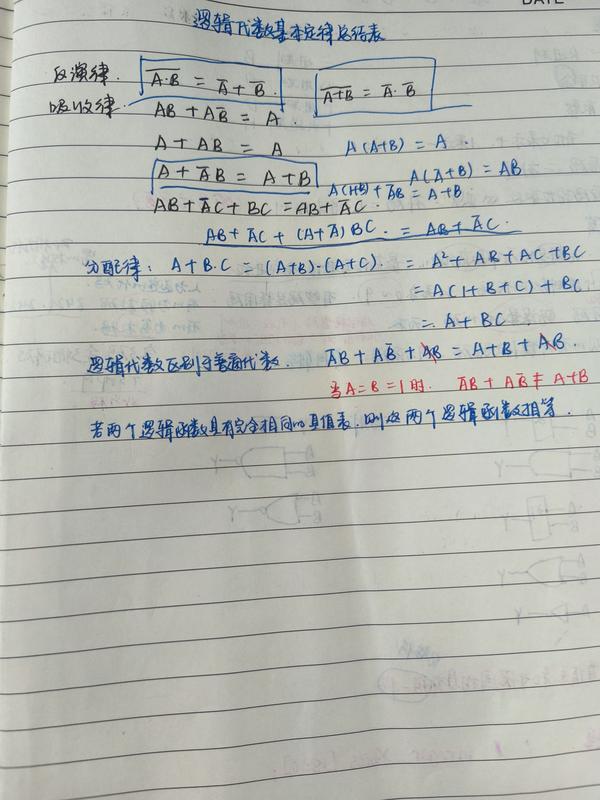 DATE
逻辑代数基本定律总结表
反演律. A̅·̅B̅ = A̅ + B̅ A̅+̅B̅ = A̅·B̅
吸收律. AB + AB̅ = A.
A + AB = A A(A+B) = A.
A + A̅B = A+B A(A̅+B) = AB
A(1+B) + A̅B = A+B
AB + A̅C + BC = AB + A̅C.
AB + A̅C + (A+A̅)BC. = AB + A̅C.
分配律: A + B·C = (A+B)·(A+C). = A² + AB + AC + BC
= A(1+B+C) + BC
= A + BC.
逻辑代数区别于普通代数. A̅B + AB̅ + AB = A+B + AB.
当A=B=1时. A̅B + AB̅ ≠ A+B
若两个逻辑函数具有完全相同的真值表.则这两个逻辑函数相等.